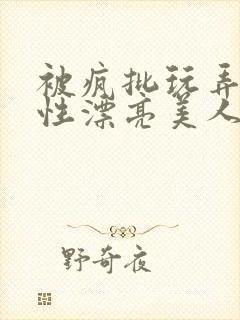 被疯批玩弄
性漂亮美人
野奇夜